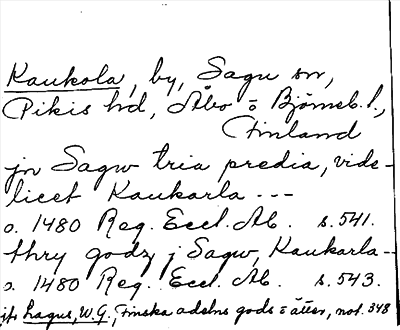 Kaukola, by, Sagu sn,
Pikis hd, Åbo o Björneb. l.,
Finland
jn Sagw tria predia, vids-
licet Kaukarla ---
o. 1480 Reg. Eccl. Ab. s. 541.
thry godz j Sagw, Kaukarla--
o. 1480 Reg. Eccl. Ab. s. 543.
jfr Lagus, W. G., Finska adelns gods o ätter, not. 348